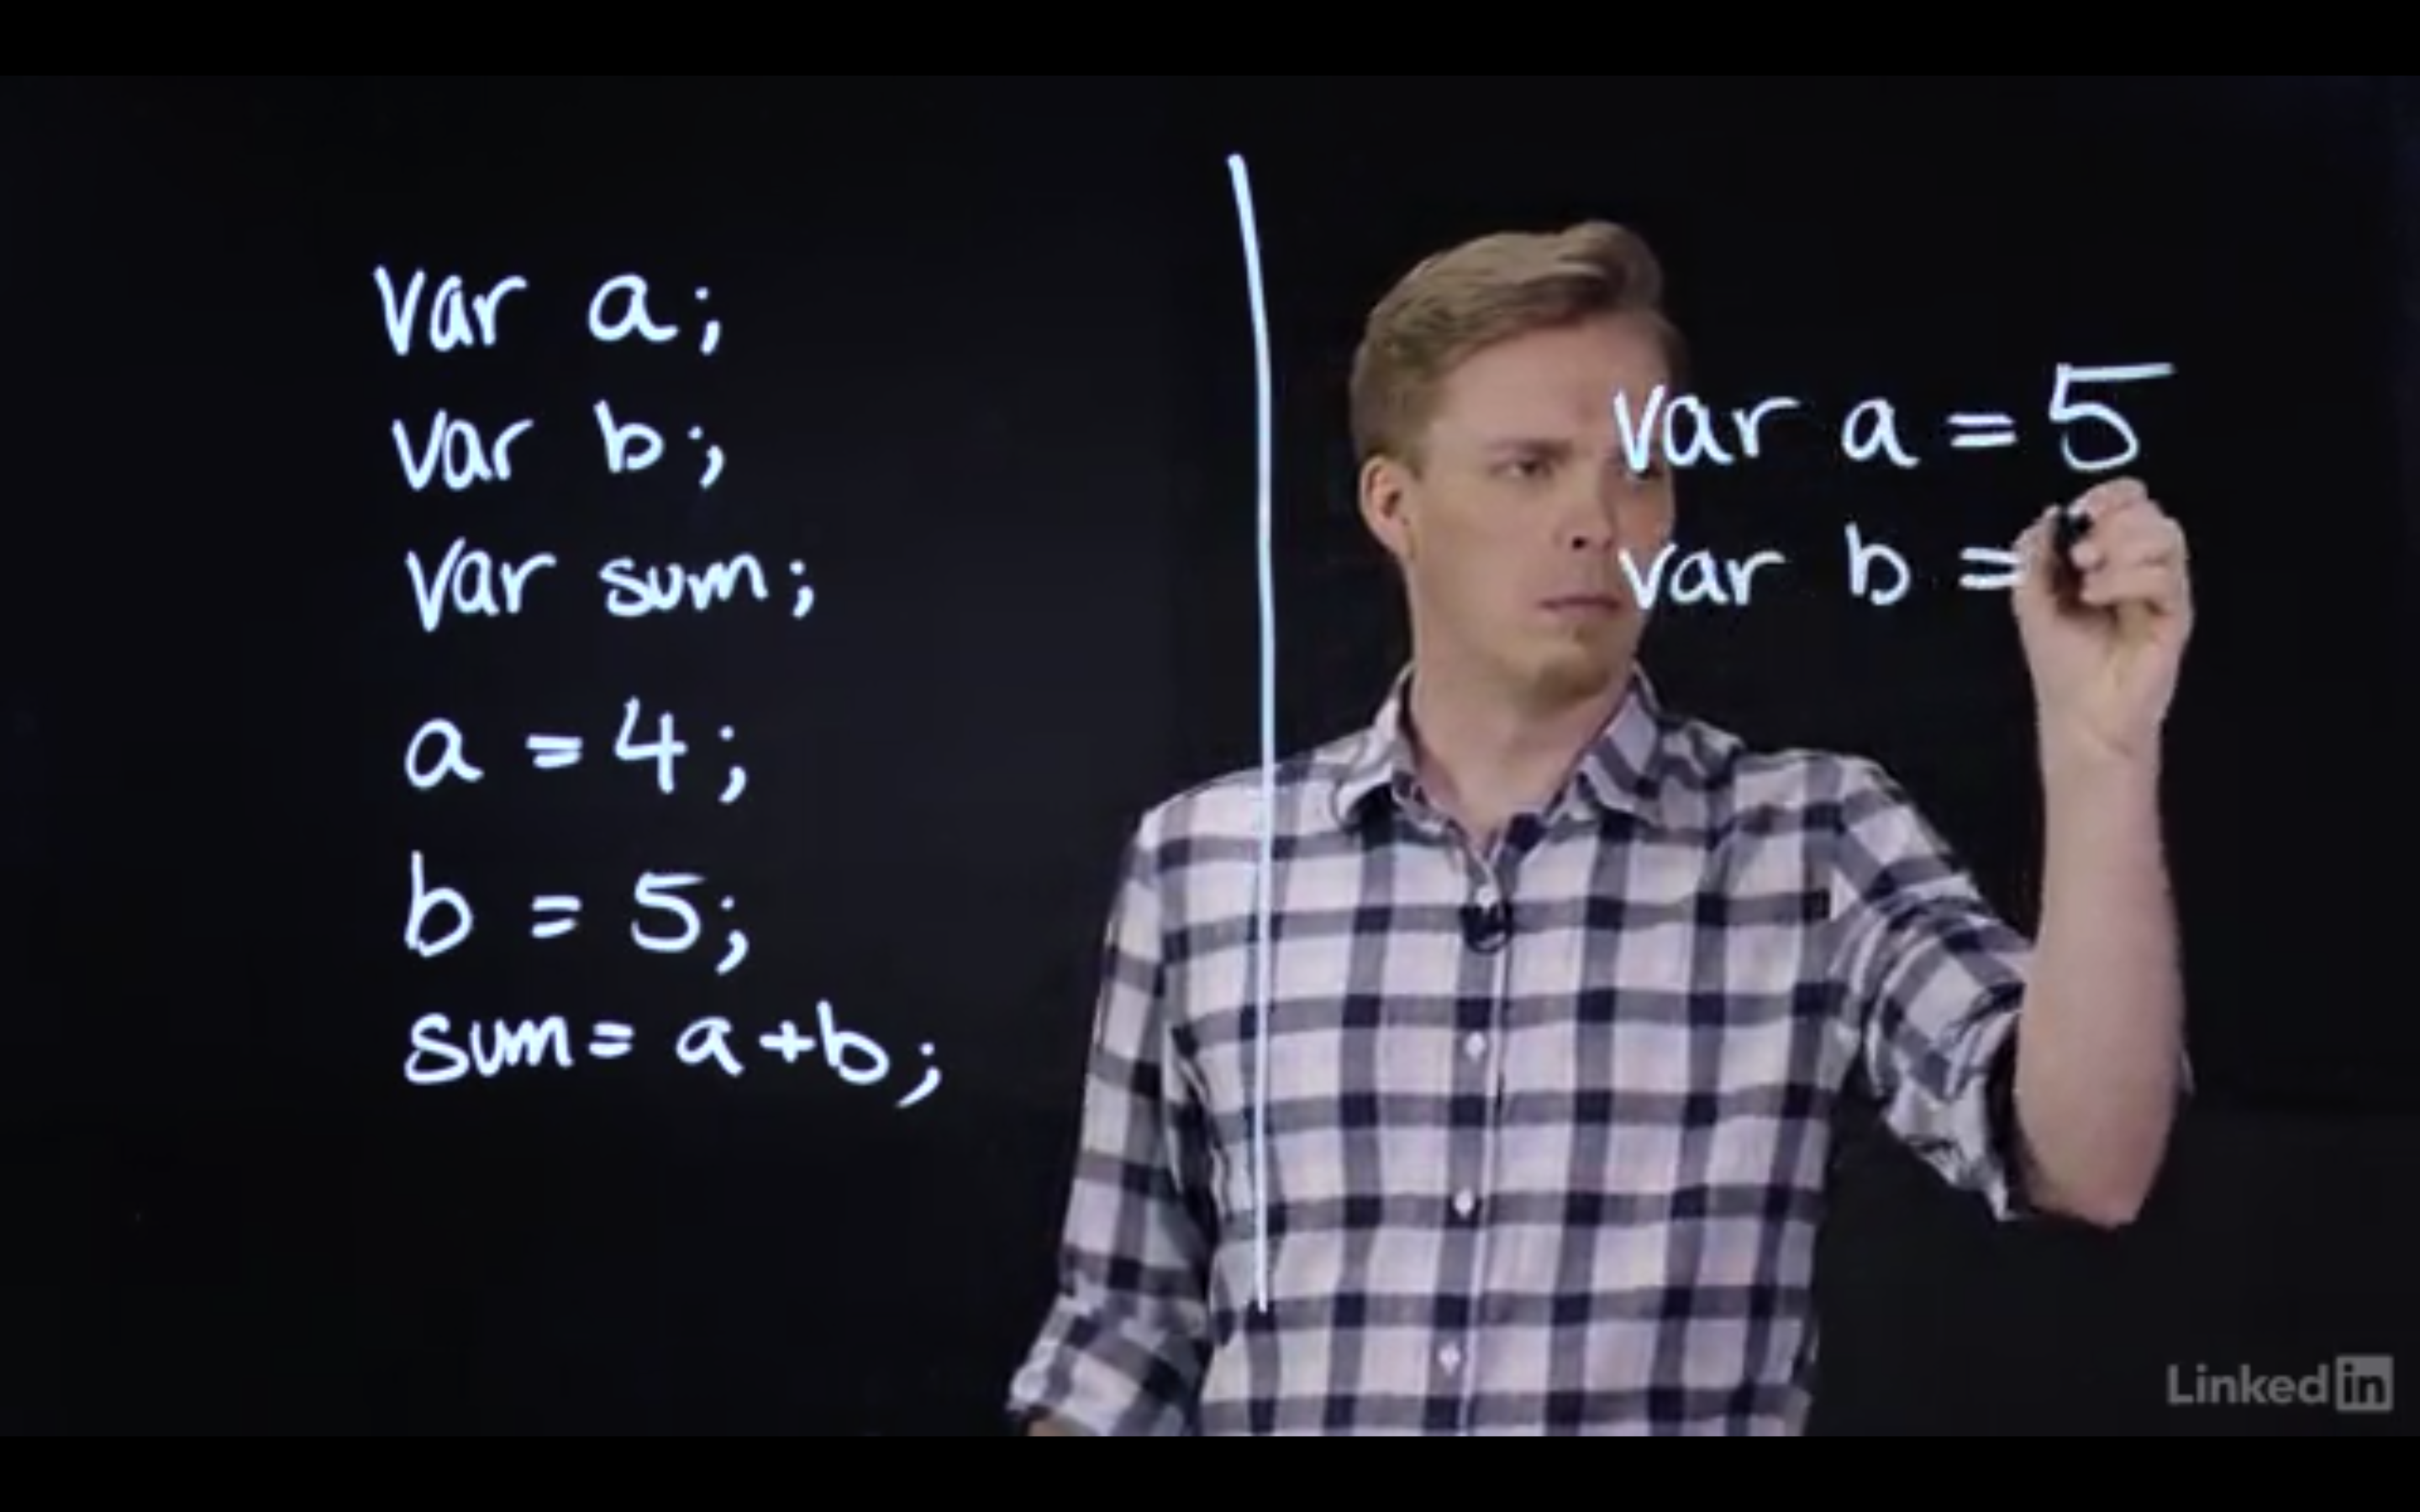 var a;
var b;
var sum;
a = 4;
b = 5;
sum = a+b;
var a = 5
var b =
LinkedIn